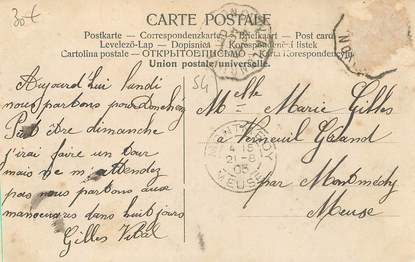 30€
CARTE POSTALE
Postkarte — Correspondenzkarte — Briefkaart — Post card
Levelező-Lap — Dopisnica — Korespondenční listek
Cartolina postale — ОТКРЫТОЕ ПИСЬМО — Karta Korespondencyjna
Union postale universelle.
54
Aujourd hui lundi
nous partons pour Donchéry
Peut Etre dimanche
j'irai faire un tour
mais ne m attendez
pas nous partons aux
manoeuvres dans huit jours
Gilles Vital
Melle Marie Gilles
Verneuil Grand
par Montmédy
Meuse
MONTMEDY
4 15
21-8
05
MEUSE